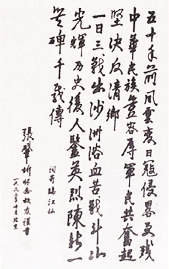 五十年前風雲變日侵畧更殘
中華民族豈容辱軍民共奮起
堅决反清鄉
一日三戰出沙洲浴血苦戰斗
光輝歷史後人鑒英烈陳新一
豐碑千載傳
調寄臨江仙
張肇